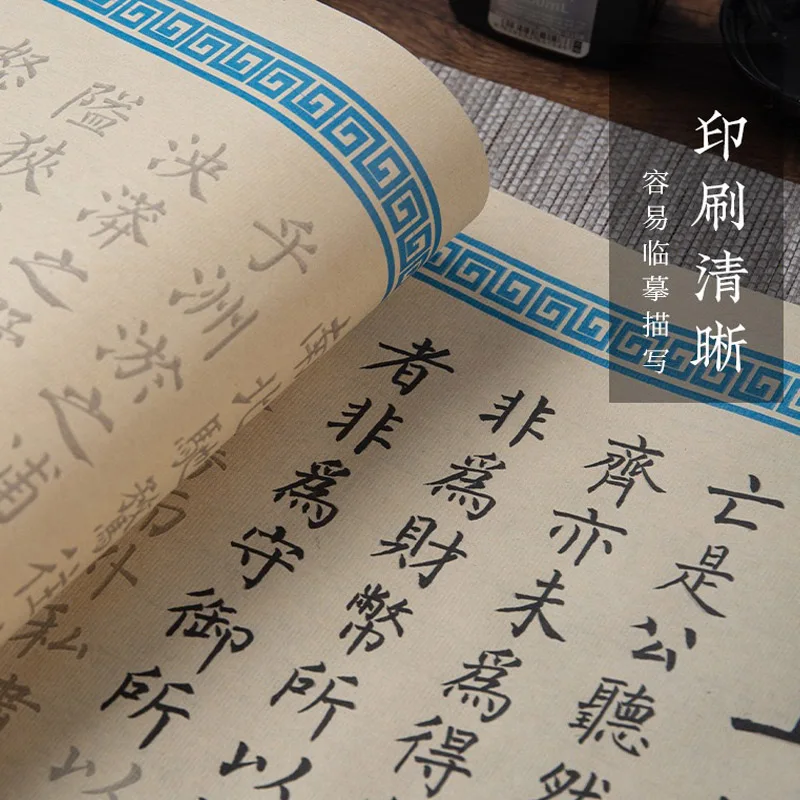 印刷清晰
容易临摹描写
亡是公聽然
齊亦未為得
非為財幣所以
者非為守御所以
乎洲淤之浦
泱漭之
隘狹